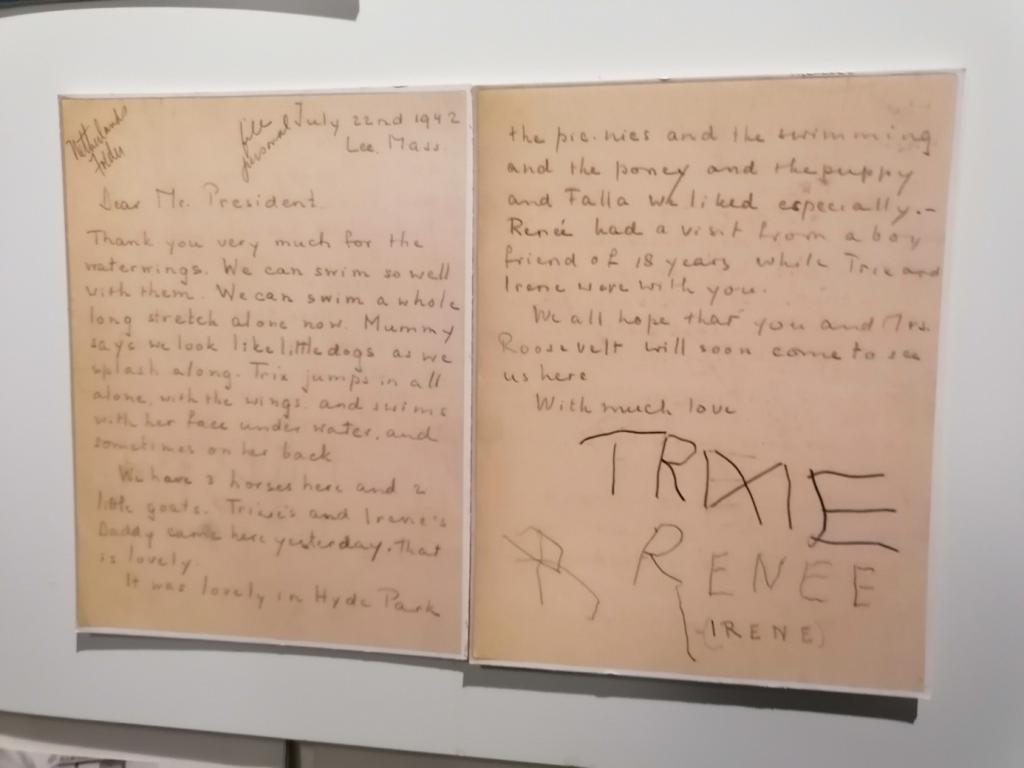 Netherlands
Folder
file
personal
July 22nd 1942
Lee. Mass.
Dear Mr. President
Thank you very much for the
waterwings. We can swim so well
with them. We can swim a whole
long stretch alone now. Mummy
says we look like little dogs as we
splash along. Trix jumps in all
alone, with the wings and swims
with her face under water, and
sometimes on her back
We have 3 horses here and 2
little goats. Trixie's and Irene's
Daddy came here yesterday. That
is lovely.
It was lovely in Hyde Park
the pic-nics and the swimming
and the poney and the puppy
and Falla we liked especially.-
Renée had a visit from a boy
friend of 18 years while Trix and
Irene were with you.
We all hope that you and Mrs.
Roosevelt will soon come to see
us here
With much love
TRIXIE
RENEE
(IRENE)